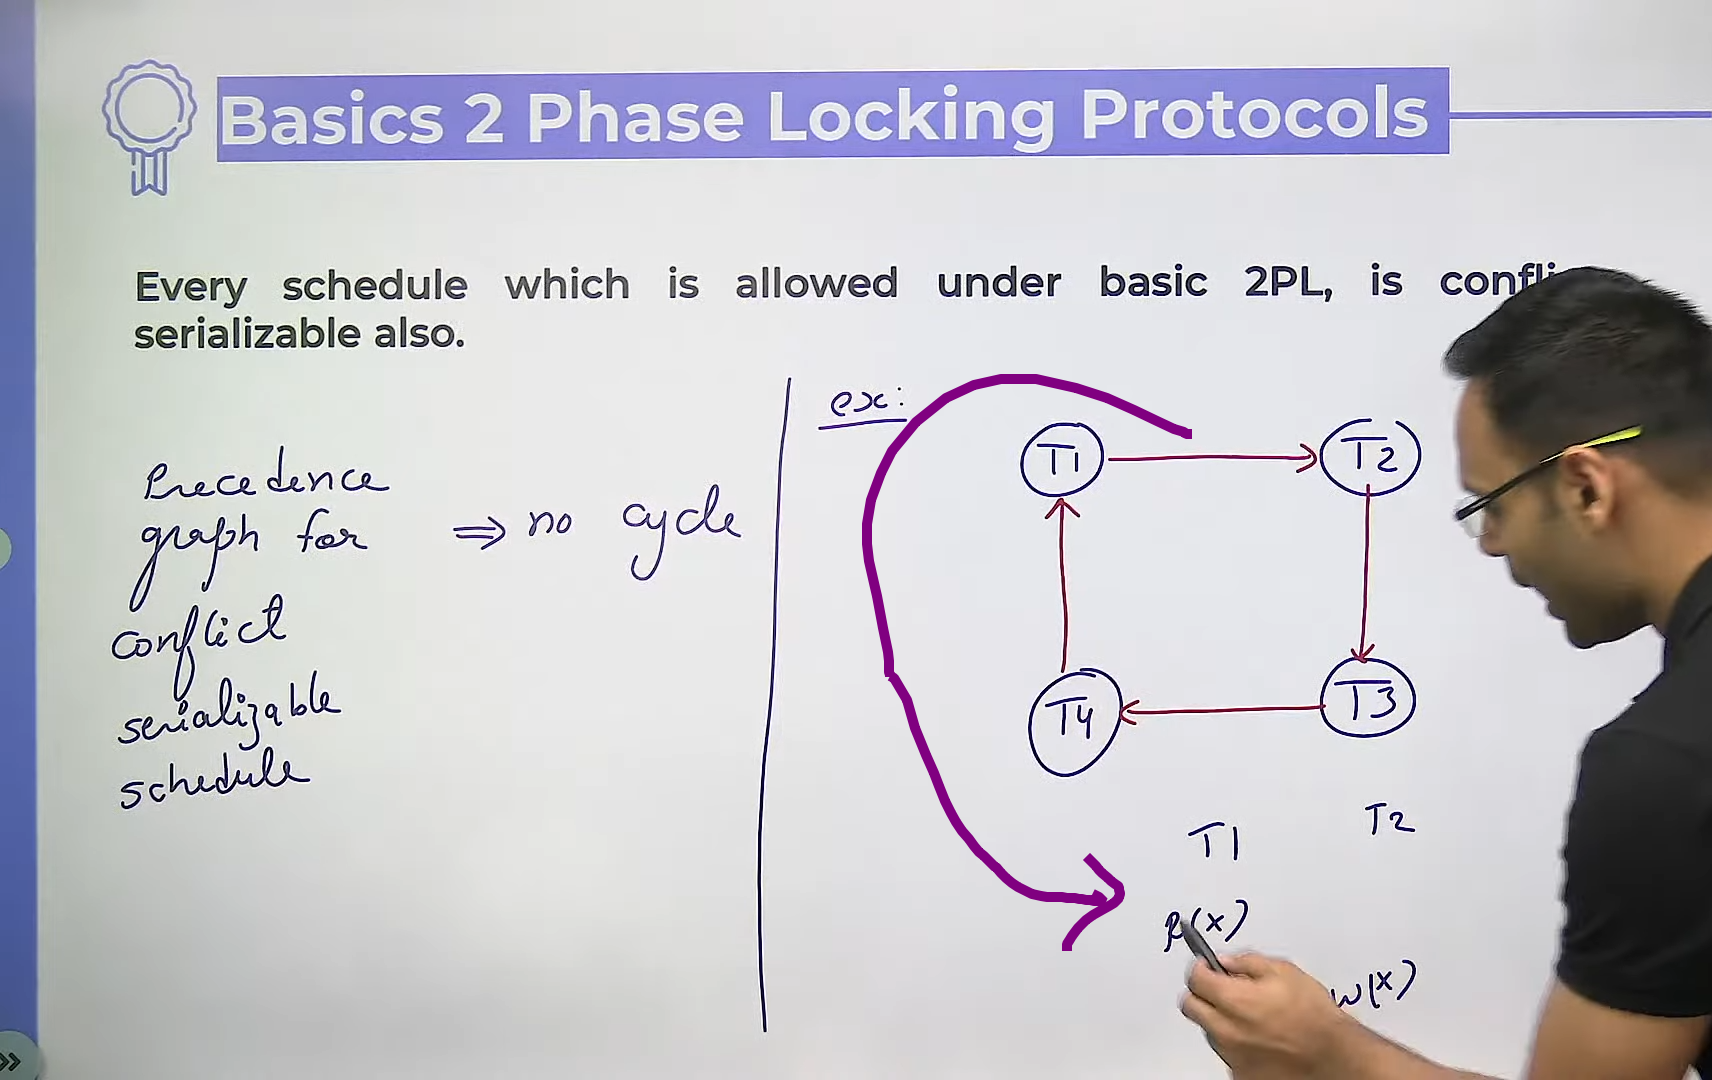 Basics 2 Phase Locking Protocols
Every schedule which is allowed under basic 2PL, is
serializable also.
Precedence
graph for ⇒ no cycle
conflict
serializable
schedule
ex:
T1 T2
T4 T3
T1 T2
R(x)
W(x)